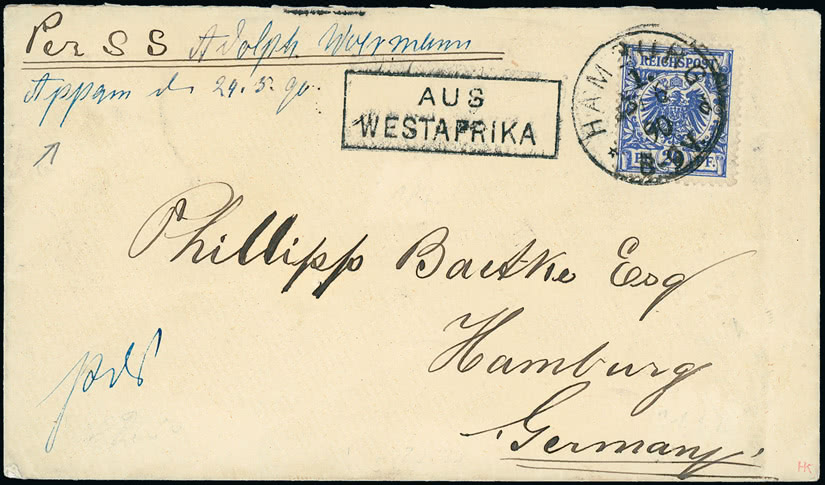 Per SS Adolph Woermann
Appam d. 29. 5. 90.
AUS
WESTAFRIKA
REICHSPOST
HAMBURG
Phillipp Baetke Esq
Hamburg
Germany
HK